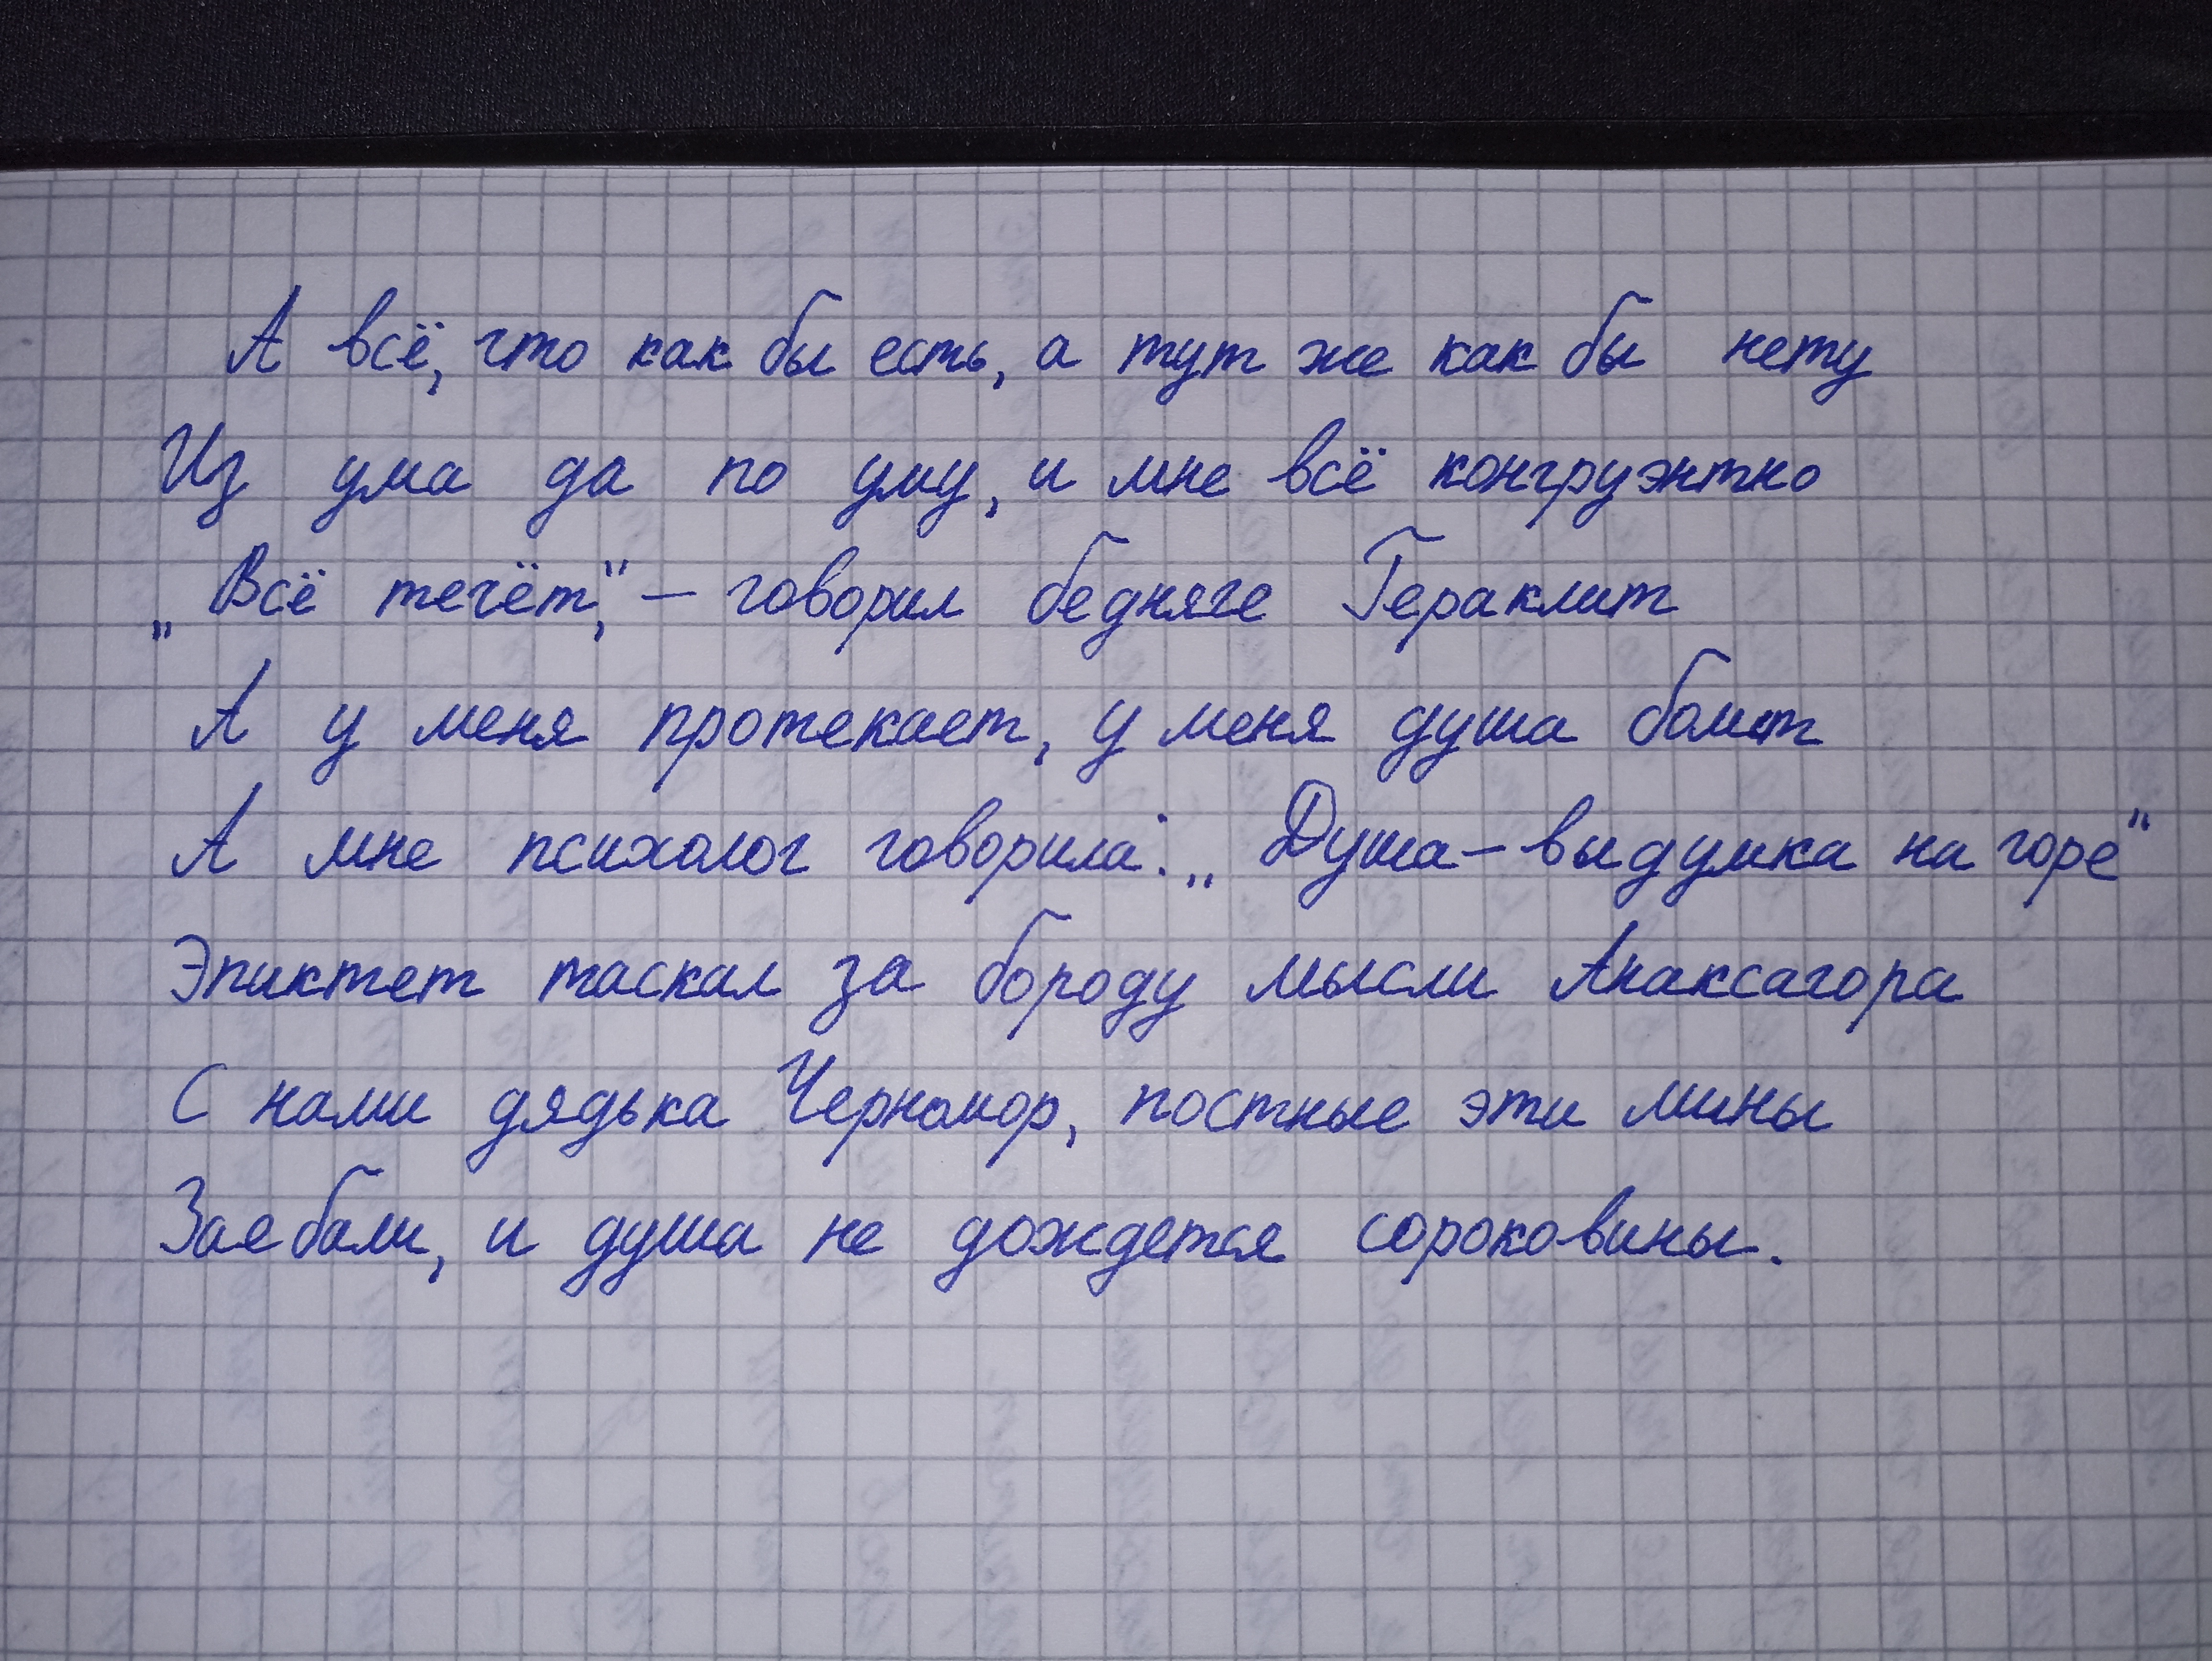 А всё, что как бы есть, а тут же как бы нету
Из ума да по уму, и мне всё конгруэнтно
„Всё течёт,“ – говорил бедняге Гераклит
А у меня протекает, у меня душа болит
А мне психолог говорила: „Душа – выдумка на горе“
Эпиктет таскал за бороду мысли Анаксагора
С нами дядька Черномор, постные эти мины
Заебали, и душа не дождется сороковины.